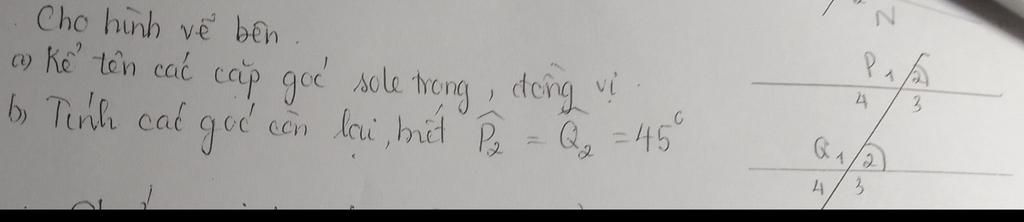 Cho hình vẽ bên.
a) Kể tên các cặp góc sole trong, đồng vị.
b) Tính các góc còn lại, biết P̂₂ = Q̂₂ = 45°
N
P 1 2
4 3
Q 1 2
4 3